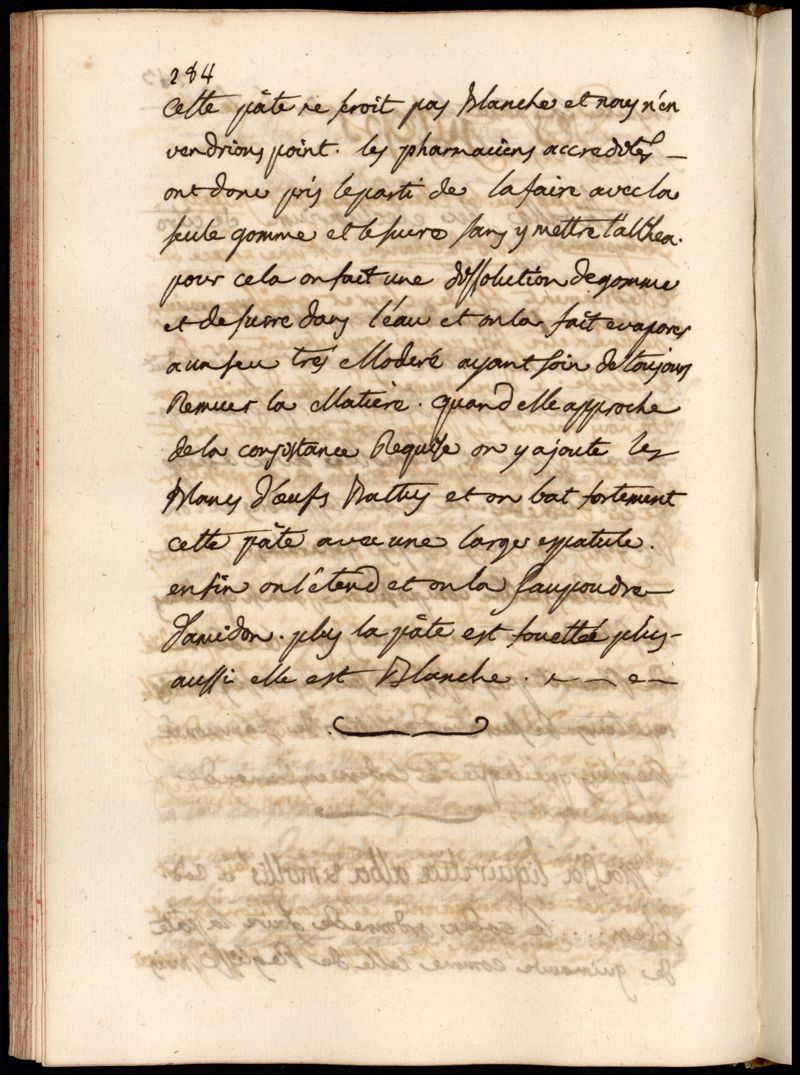 284
Cette pâte ne seroit pas Blanche et nous n'en
vendrions point. les pharmaciens accredités _
ont donc pris le parti de la faire avec la
seule gomme et le sucre sans y mettre l'althea.
pour cela on fait une dissolution de gomme
et de sucre dans l'éau et on la fait evaporer
a un feu trés Moderé ayant soin de toujours
Remuer la Matière. quand elle approche
de la consistance Requise on y ajoute les
Blancs d'œufs Battus et on bat fortement
cette pâte avec une large espatule.
enfin on l'étend et on la saupoudre
d'amidon. plus la pâte est fouettée plus
aussi elle est Blanche.